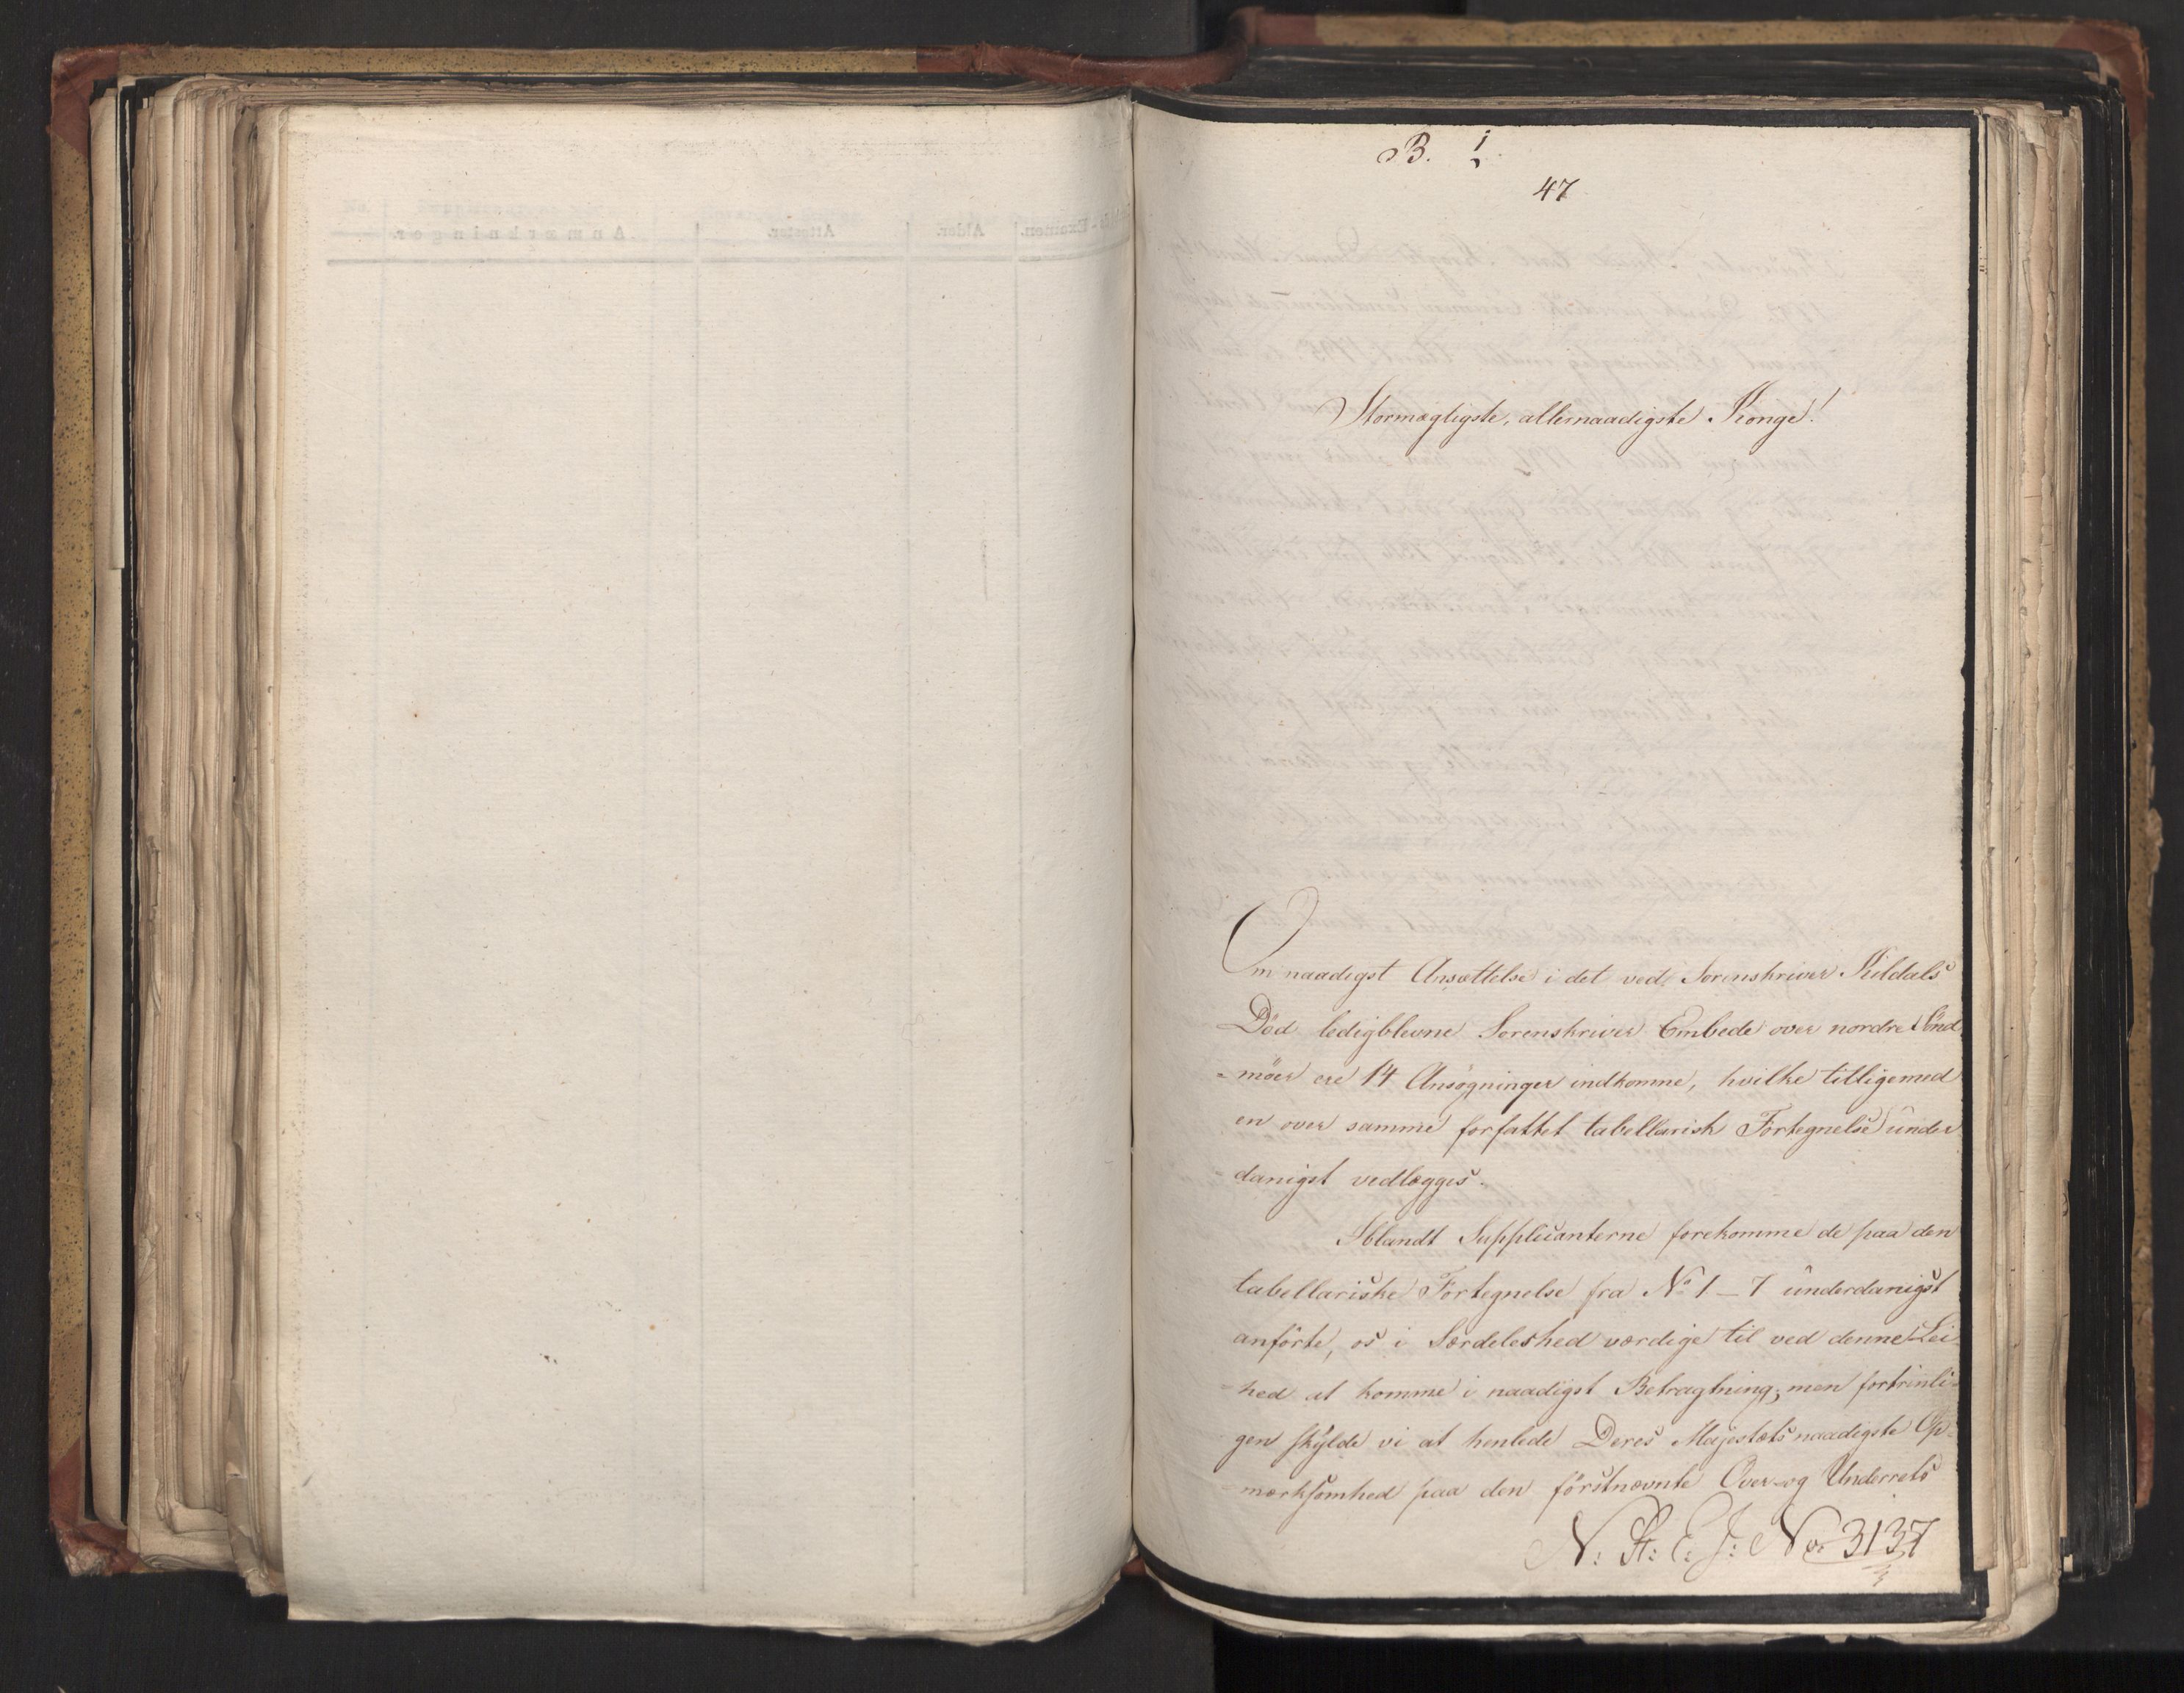 B. 1
47
Stormægtigste, allernaadigste Konge!
Om naadigst Ansættelse i det ved Sorenskriver Kildals
Död ledigblevne Sorenskriver Embede over nordre Sönd
=möer ere 14 Ansögninger indkomne, hvilke tilligemed
en over samme forfattet tabellarisk Fortegnelse under
danigst vedlægges.
Iblandt Supplicanterne forekomme de paa den
tabellariske Fortegnelse fra No 1 - 7 underdanigst
anförte, os i Særdeleshed værdige til ved denne Lei
=hed at komme i naadigst Betragtning; men fortrinli=
gen skylde vi at henlede Deres Majestæts naadigste Op=
mærksomhed paa den förstnævnte Over- og Underrets
N: St: E: J: No 3137